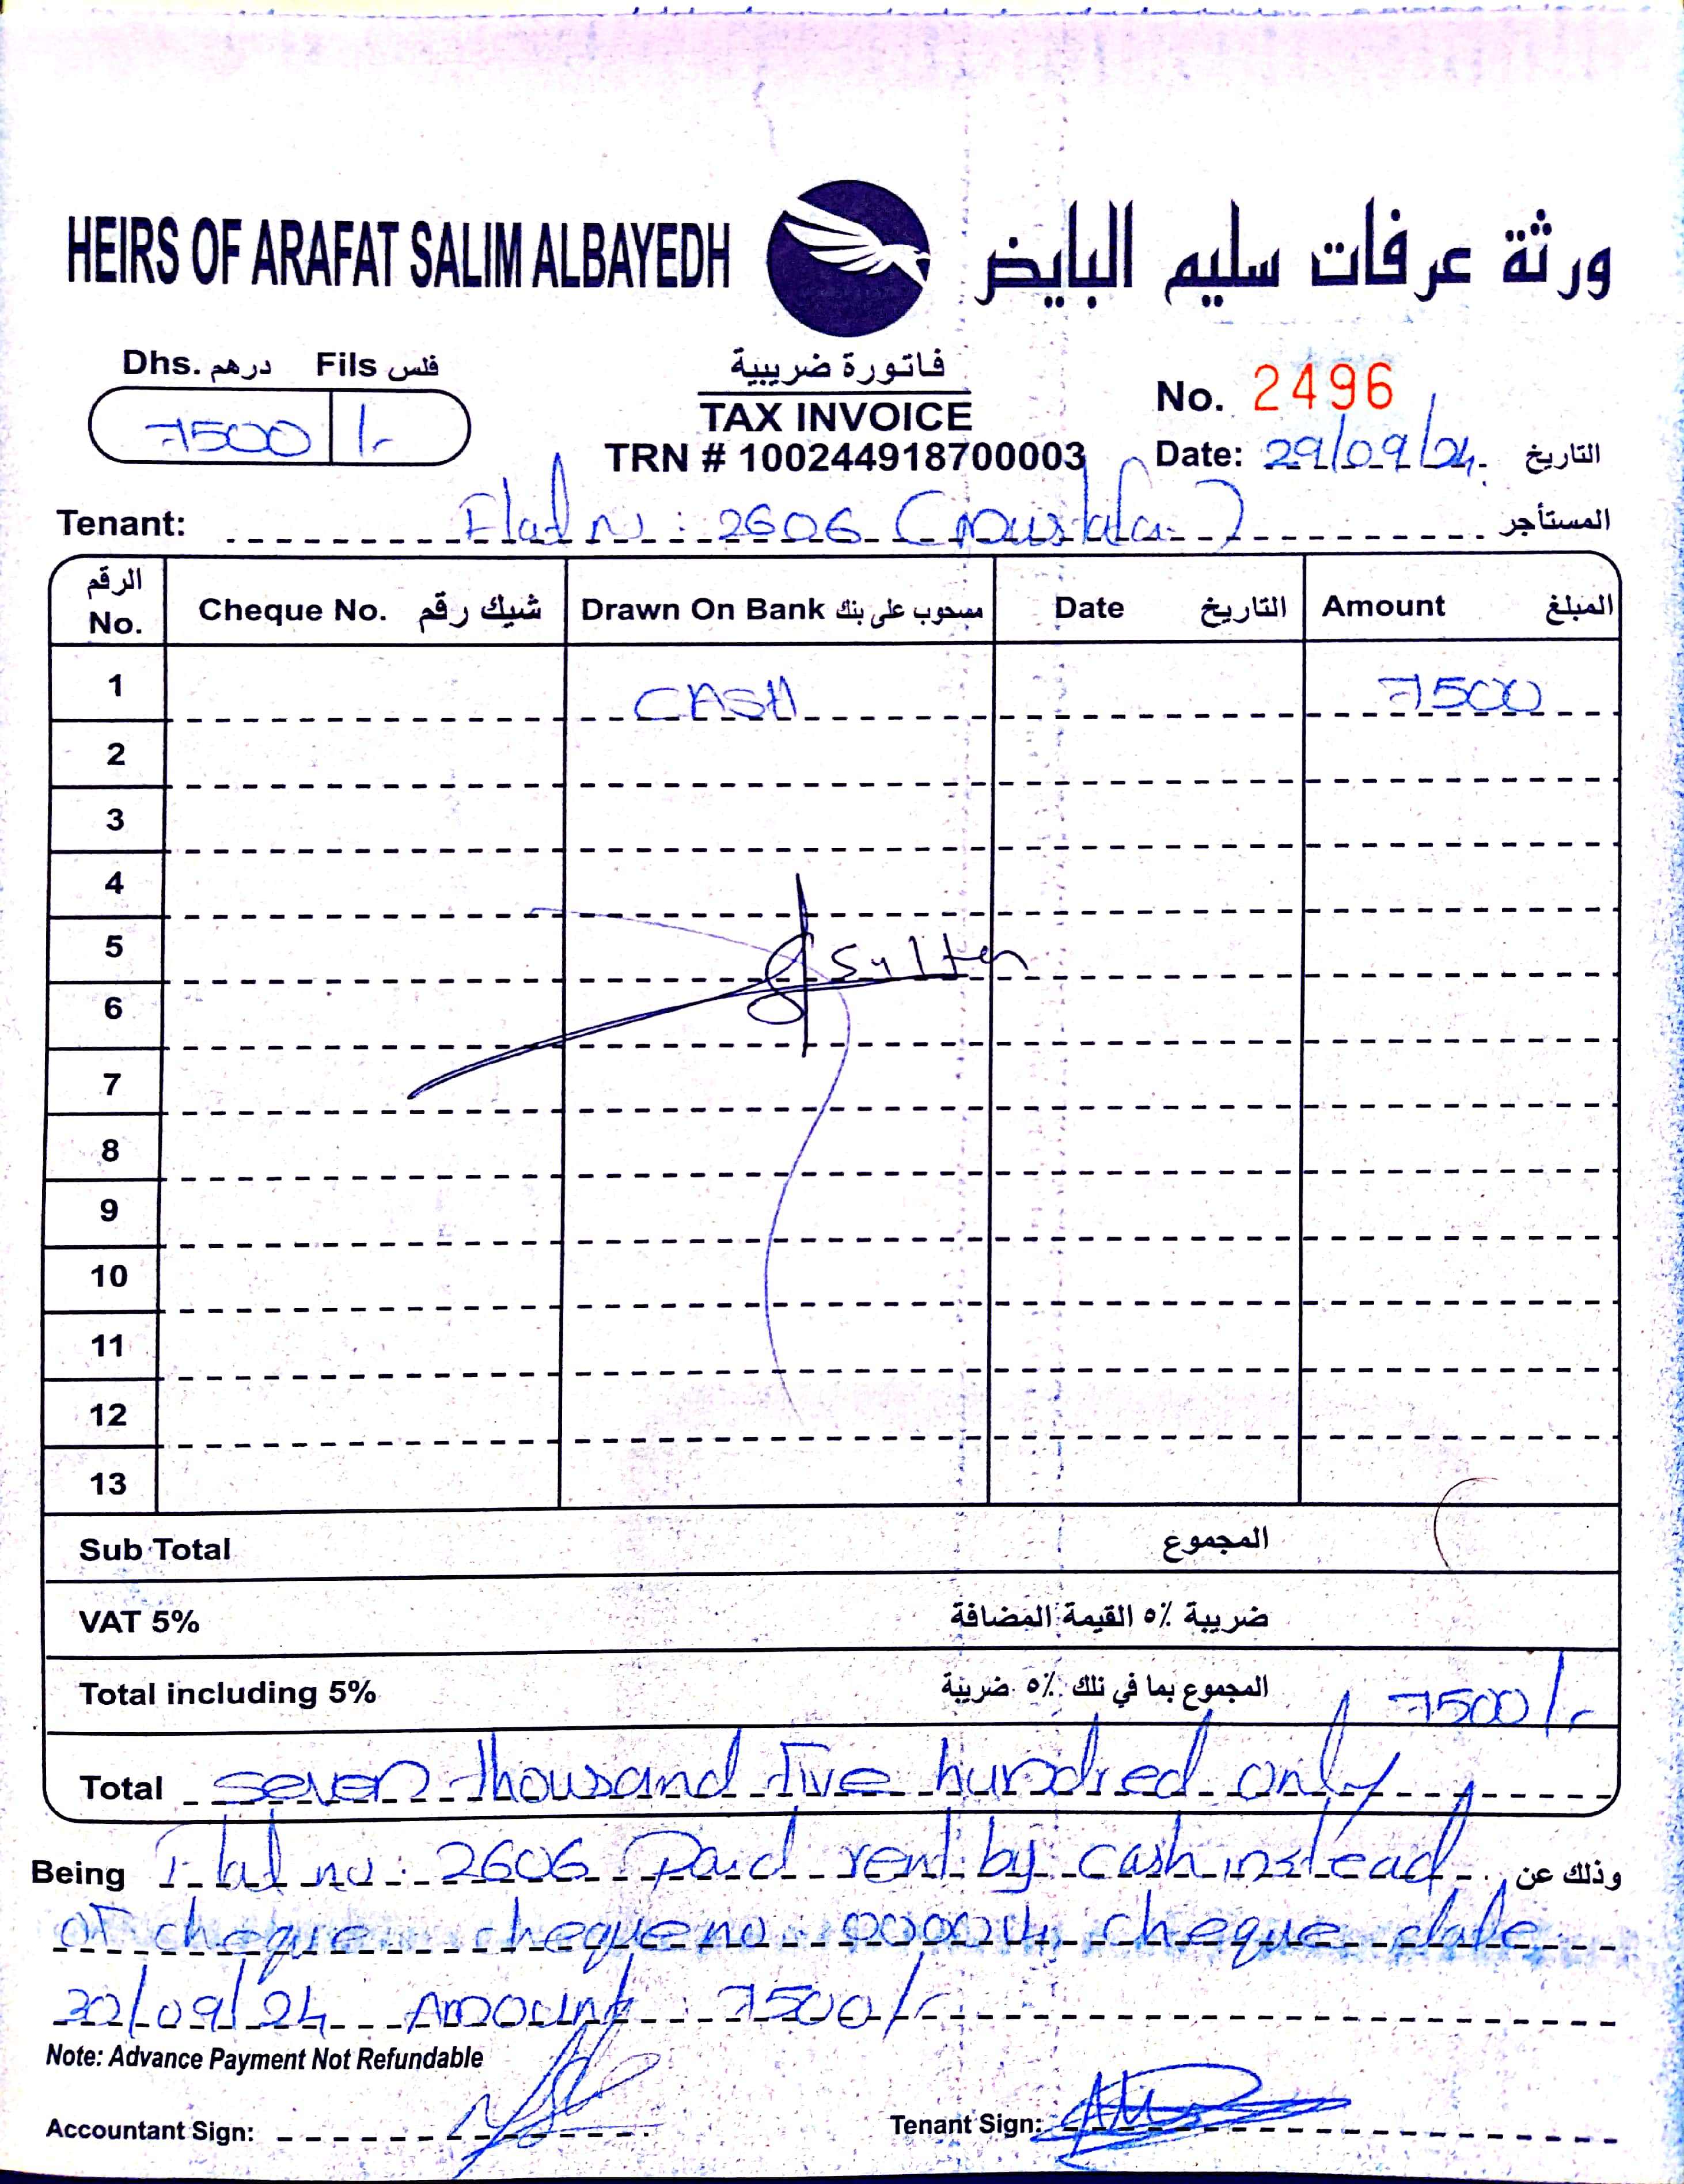 HEIRS OF ARAFAT SALIM ALBAYEDH ورثة عرفات سليم البايض
Dhs. درهم Fils فلس
7500 /-
فاتورة ضريبية
TAX INVOICE
TRN # 100244918700003
No. 2496
Date: 29/09/24. التاريخ
Tenant: Flat no: 2606 (Mustafa) المستأجر
الرقم No. Cheque No. شيك رقم Drawn On Bank مسحوب على بنك Date التاريخ Amount المبلغ
1 CASH 7500
2
3
4
5 Sultan
6
7
8
9
10
11
12
13
Sub Total المجموع
VAT 5% ضريبة ٥٪ القيمة المضافة
Total including 5% المجموع بما في ذلك ٥٪ ضريبة 7500/-
Total seven thousand five hundred only
Being Flat no: 2606 Paid rent by cash instead وذلك عن
of cheque cheque no: 000004 cheque date
30/09/24 Amount: 7500/-
Note: Advance Payment Not Refundable
Accountant Sign: Tenant Sign: